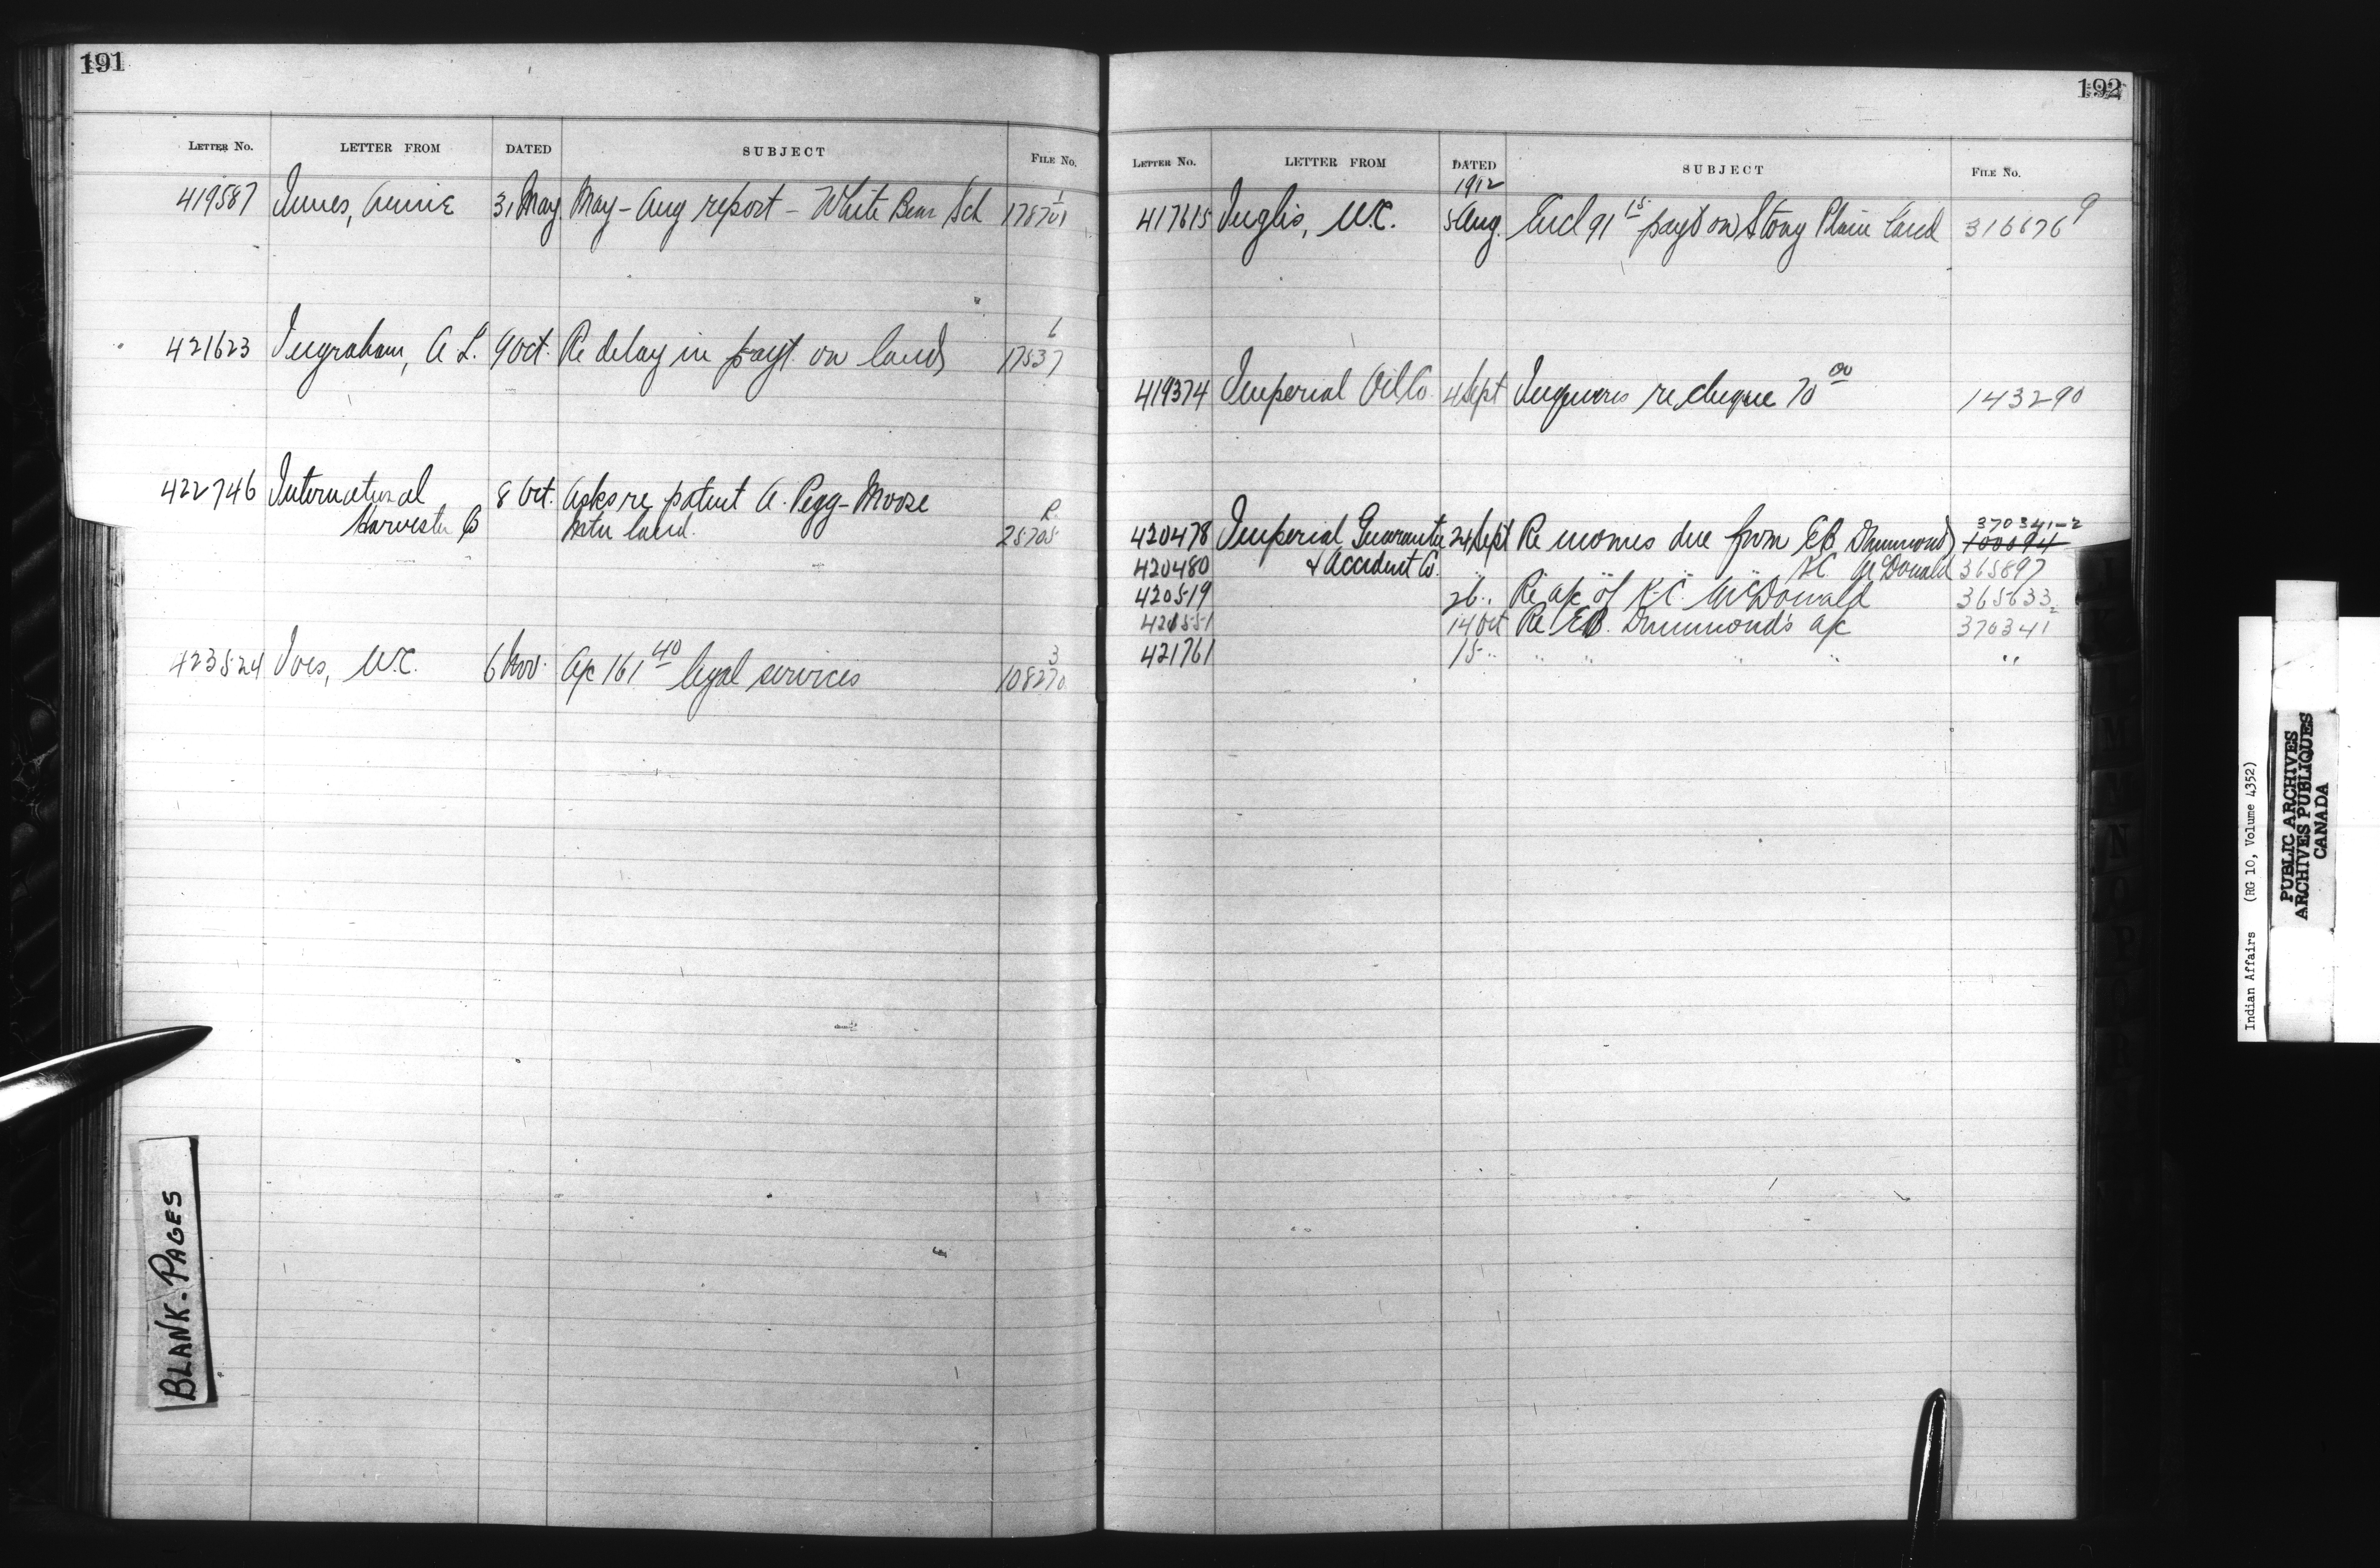 191
LETTER NO. LETTER FROM DATED SUBJECT FILE NO.
419587 Innes, Annie 31 May May - Aug report - White Bear Sch 178701 1
421623 Ingraham, A L. 9 Oct. Re delay in payt. on land 17537 6
422746 International 8 Oct. Asks re patent A. Pegg - Moose
Harvester Co Mtn land. 25705 R.
423524 Ives, W.C. 6 Nov. A/c 161 40 legal services 108270 3
BLANK-PAGES
192
LETTER NO. LETTER FROM DATED SUBJECT FILE NO.
1912
417615 Inglis, W.C. 5 Aug. Encl 91 15 payt on Stony Plain land 316676 9
419374 Imperial Oil Co. 4 Sept Inquires re cheque 70 00 143290
370341-2
420478 Imperial Guarantee 24 Sept Re monies due from EB Drummond 100094
420480 & Accident Co. " " " " K.C. McDonald 365897
420519 26 " Re a/c of K.C. McDonald 365633
421551 14 Oct Re EB. Drummond's a/c 370341 2
421761 15 " " " " " "
Indian Affairs (RG 10, Volume 4352)
PUBLIC ARCHIVES
ARCHIVES PUBLIQUES
CANADA